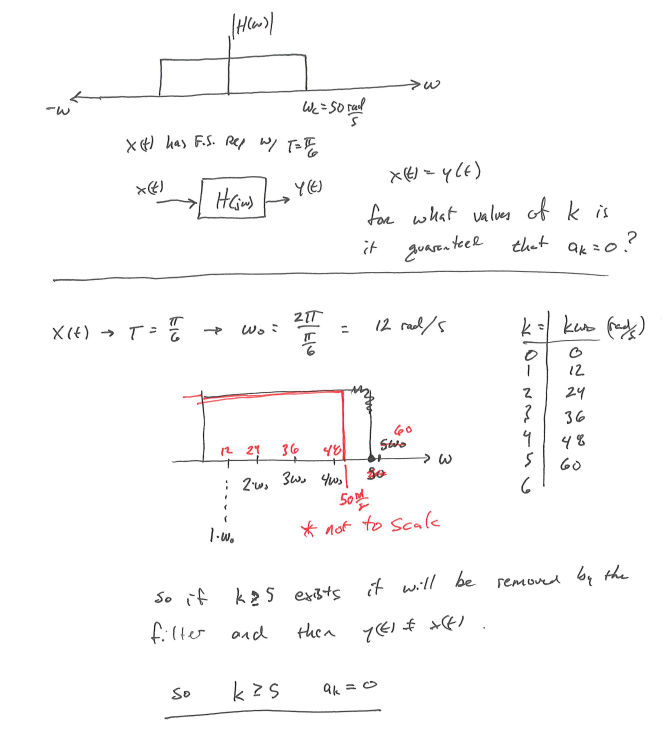 |H(ω)|
-ω
ω
ωc = 50 rad/s
x(t) has F.S. Rep w/ T = π/6
x(t) → H(jω) → y(t)
x(t) = y(t)
for what values of k is
it guaranteed that ak = 0?
x(t) → T = π/6 → ω₀ = 2π/(π/6) = 12 rad/s
k = | kω₀ (rad/s)
0 | 0
1 | 12
2 | 24
3 | 36
4 | 48
5 | 60
6
60
12 24 36 48 5ω₀
ω
2·ω₀ 3ω₀ 4ω₀
50 rad/s
1·ω₀
* not to scale
so if k ≥ 5 exists it will be removed by the
filter and then y(t) ≠ x(t).
so k ≥ 5 ak = 0